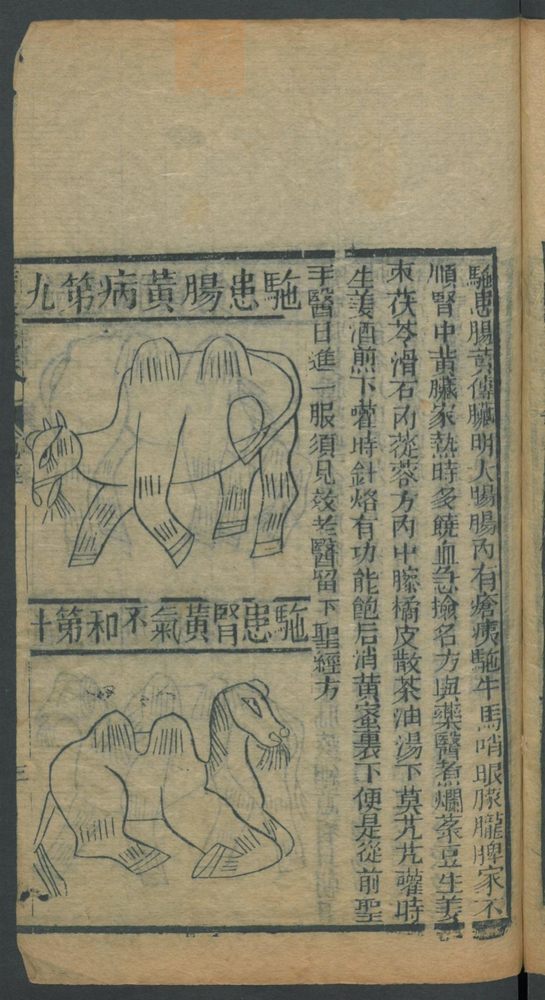 駞患腸黃傳臟明大腸腸內有瘡痍駞牛馬哨眼朦朧脾家不
順腎中黃臟家熱時多饒血急撿名方與藥醫煮爛菉豆生姜
棗茯苓滑石肉蓯蓉方內中朦橘皮散茶油湯下莫芁芁嚾時
生姜酒煎下嚾時針烙有功能飽后消黃蜜裹下便是從前聖
手醫日進一服須見效老醫留下聖經方
駞患腸黃病第九
駞患腎黃氣不和第十
三